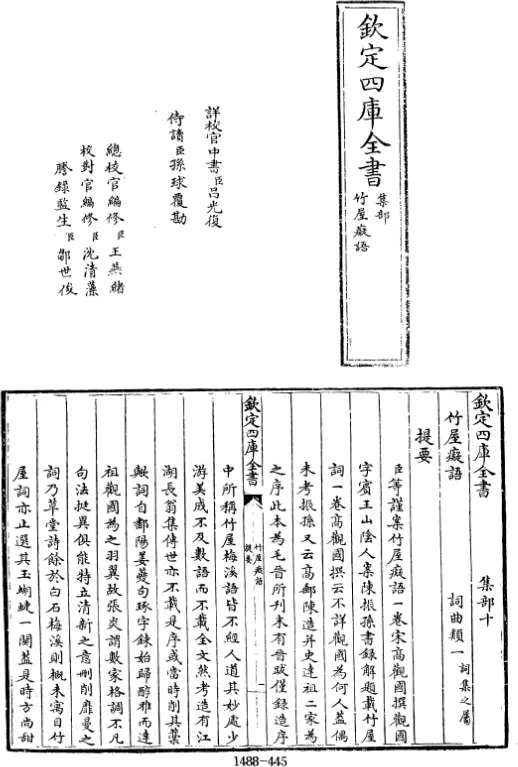 欽定四庫全書
集部
竹屋癡語
詳校官中書臣呂光復
侍讀臣孫球覆勘
總校官編修臣王燕緒
校對官編修臣沈清藻
謄錄監生臣鄒世俊
欽定四庫全書
集部十
竹屋癡語
詞曲類一詞集之屬
提要
臣等謹案竹屋癡語一卷宋高觀國撰觀國
字賓王山陰人案陳振孫書錄解題載竹屋
詞一卷高觀國撰云不詳觀國為何人蓋偶
未考振孫又云高郵陳造并史達祖二家為
之序此本為毛晉所刊末有晉跋僅錄造序
欽定四庫全書
竹屋癡語
提要
一
中所稱竹屋梅溪語皆不經人道其妙處少
游美成不及數語而不載全文然考造有江
湖長翁集傳世亦不載是序或當時削其藁
歟詞自鄱陽姜夔句琢字鍊始歸醇雅而達
祖觀國為之羽翼故張炎謂數家格調不凡
句法挺異俱能特立清新之意刪削靡曼之
詞乃草堂詩餘於白石梅溪則概未寓目竹
屋詞亦止選其玉蝴蝶一闋蓋是時方尚甜
1488-445